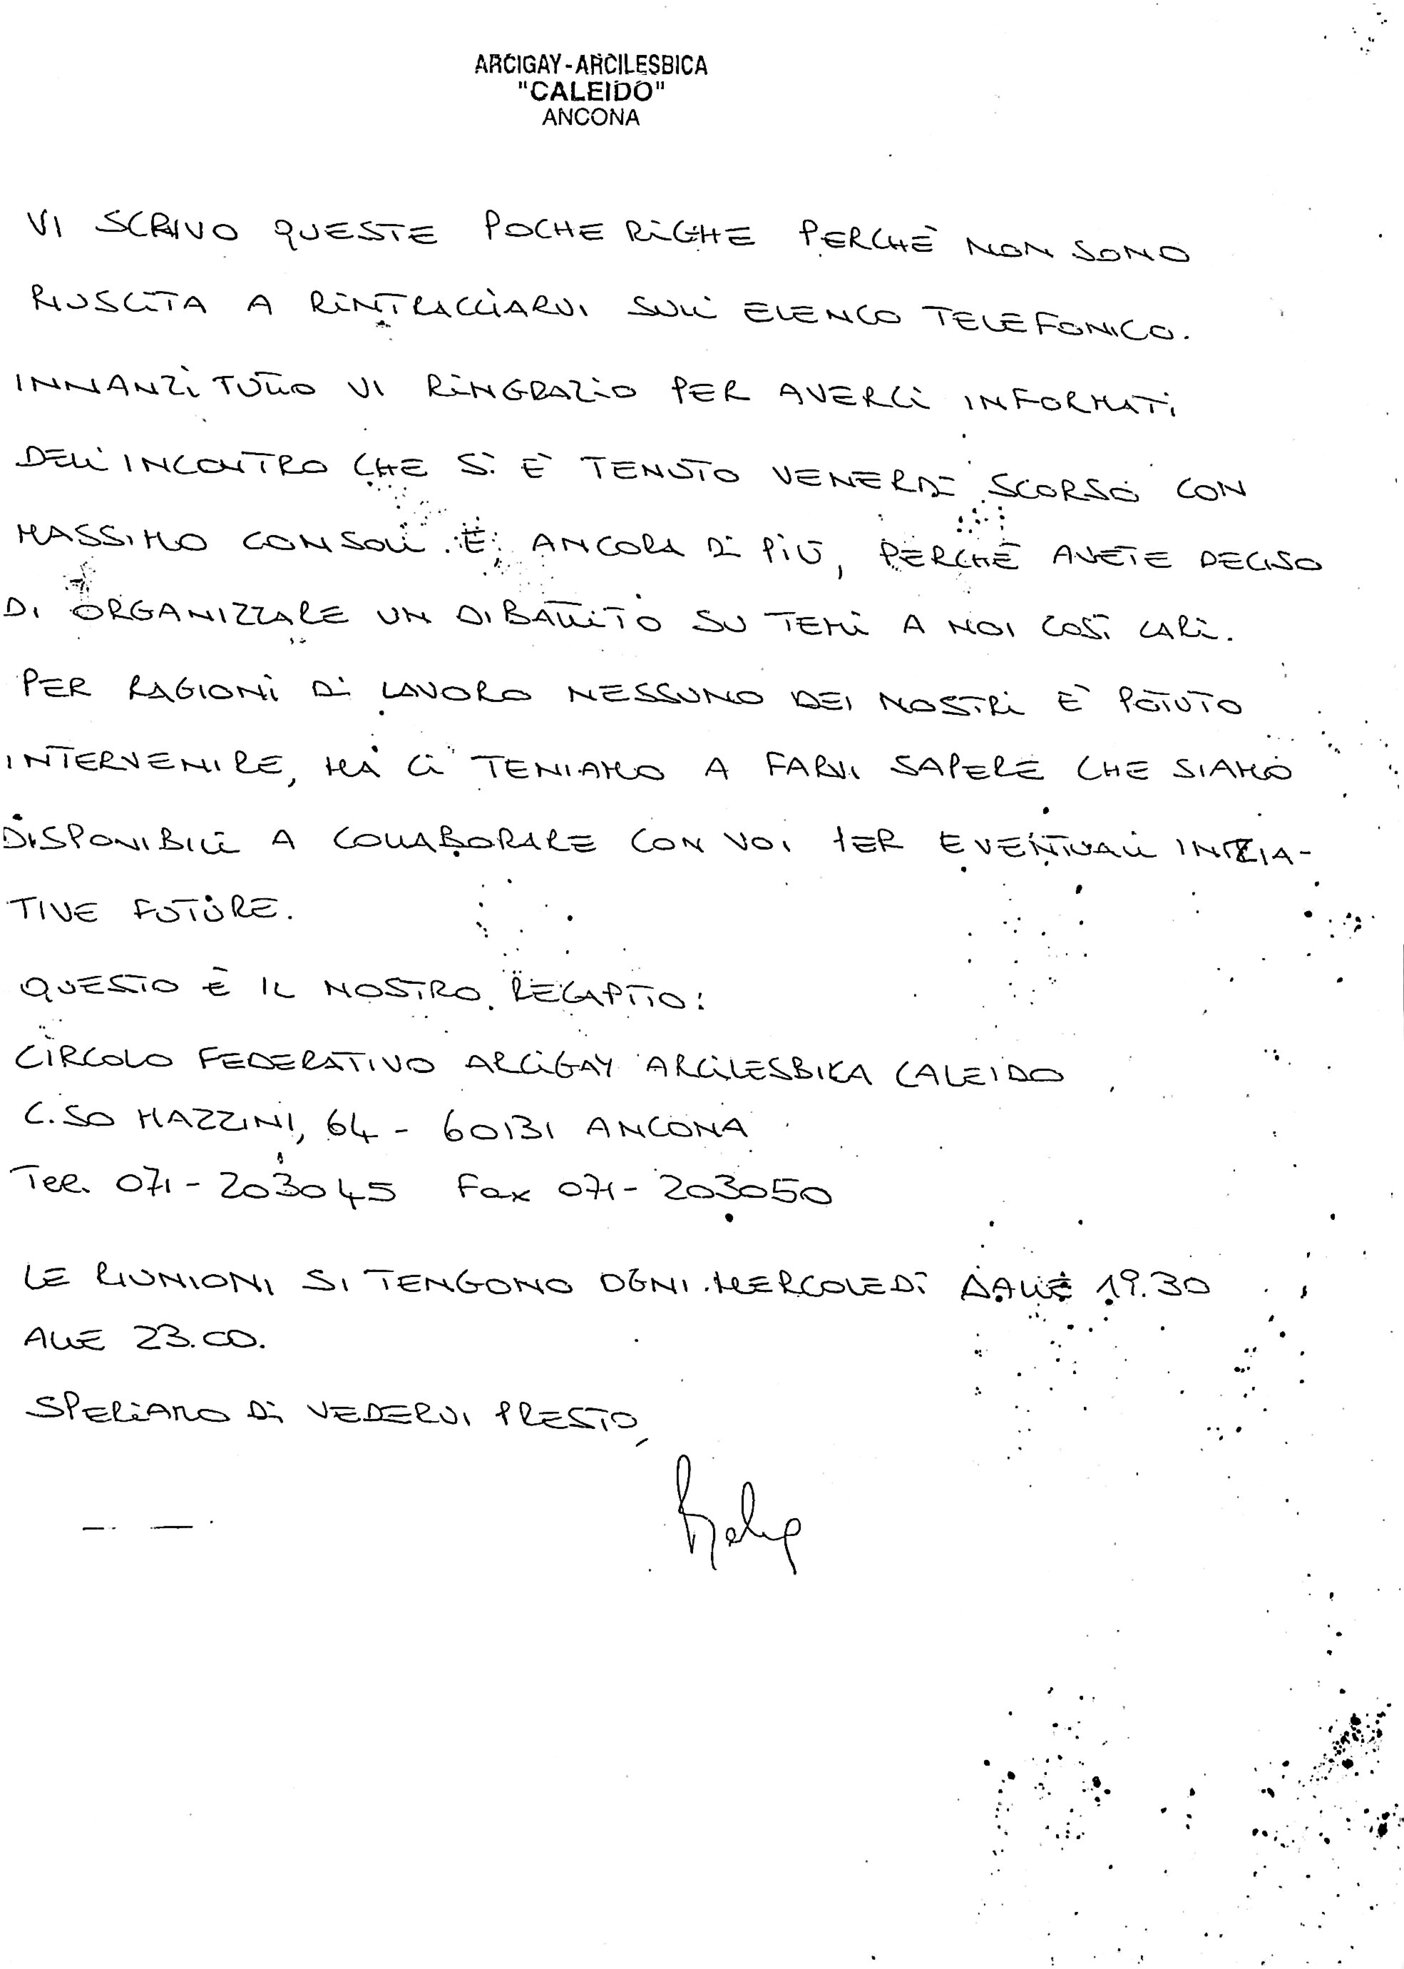 ARCIGAY-ARCILESBICA
"CALEIDO"
ANCONA
VI SCRIVO QUESTE POCHE RIGHE PERCHÈ NON SONO
RIUSCITA A RINTRACCIARVI SULL'ELENCO TELEFONICO.
INNANZITUTTO VI RINGRAZIO PER AVERCI INFORMATI
DELL'INCONTRO CHE SI È TENUTO VENERDÌ SCORSO CON
MASSIMO CONSOLI. E, ANCORA DI PIÙ, PERCHÈ AVETE DECISO
DI ORGANIZZARE UN DIBATTITO SU TEMI A NOI COSÌ CARI.
PER RAGIONI DI LAVORO NESSUNO DEI NOSTRI È POTUTO
INTERVENIRE, MA CI TENIAMO A FARVI SAPERE CHE SIAMO
DISPONIBILI A COLLABORARE CON VOI PER EVENTUALI INIZIA-
TIVE FUTURE.
QUESTO È IL NOSTRO RECAPITO:
CIRCOLO FEDERATIVO ARCIGAY ARCILESBICA CALEIDO
C.SO MAZZINI, 64 - 60131 ANCONA
Tel. 071-203045 Fax 071-203050
LE RIUNIONI SI TENGONO OGNI MERCOLEDÌ DALLE 19.30
ALLE 23.00.
SPERIAMO DI VEDERVI PRESTO,